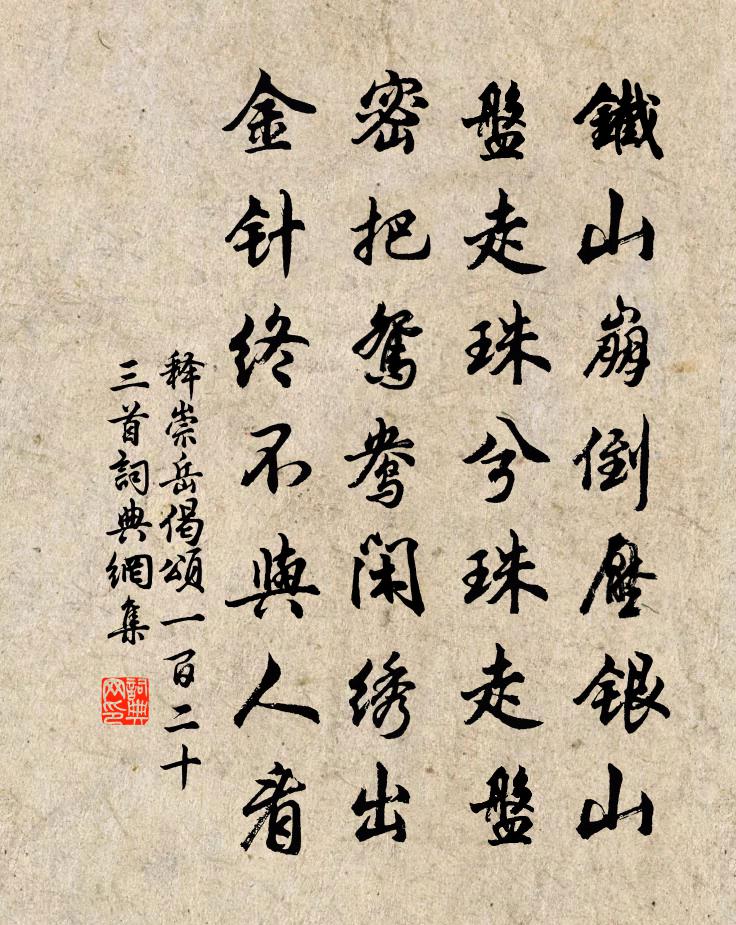 鐵山崩倒壓銀山
盤走珠兮珠走盤
密把鴛鴦閑綉出
金针終不與人看
释崇岳偈頌一百二十
三首詞典網集
詞典網印